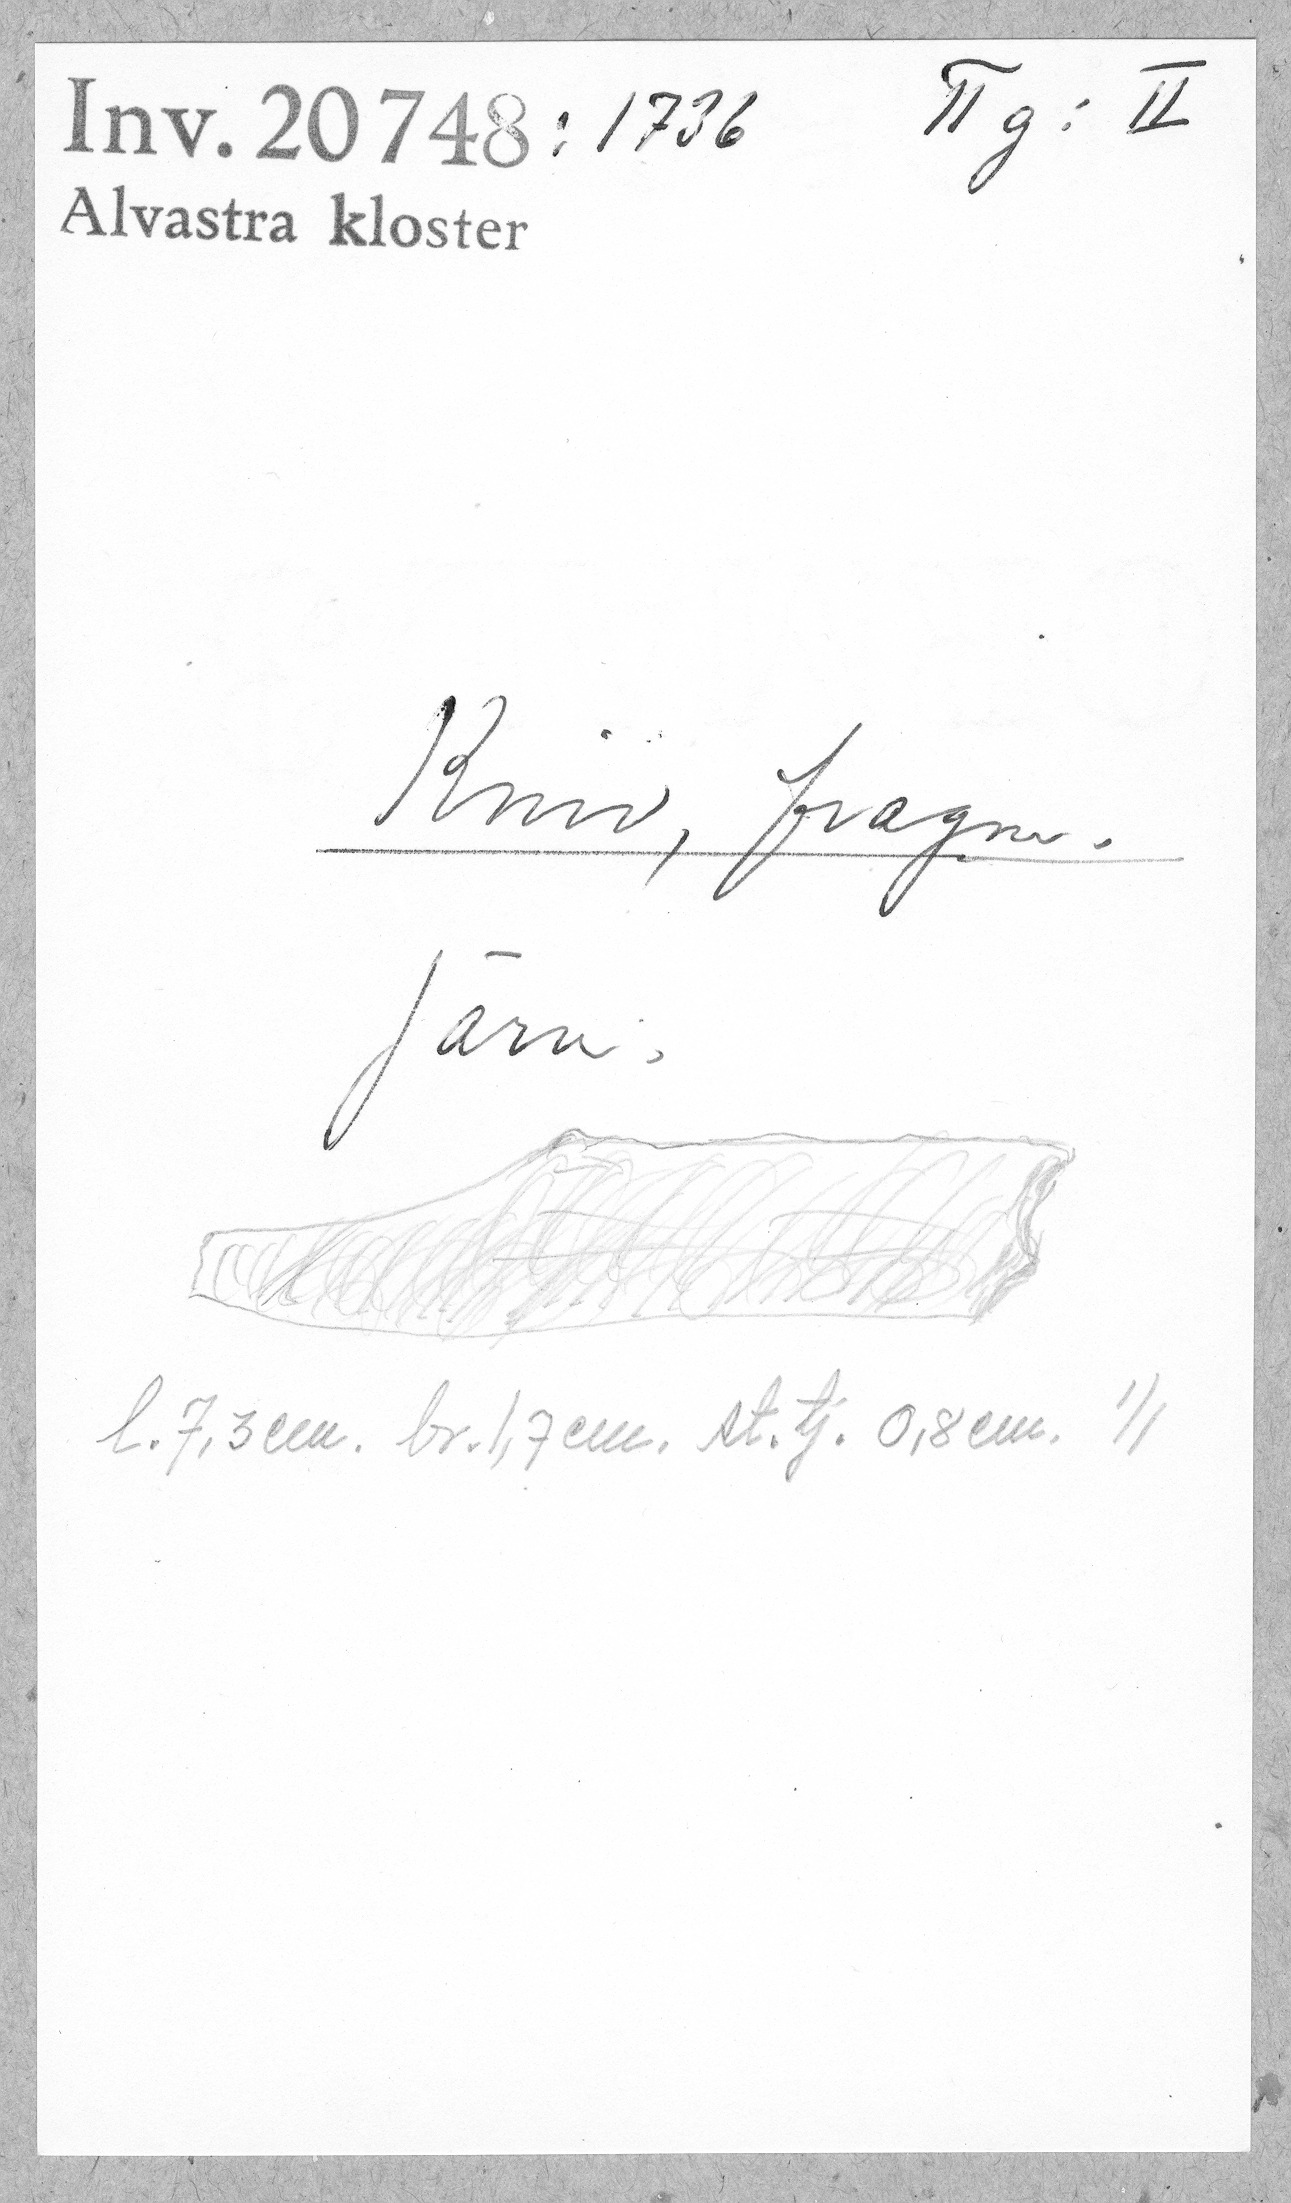 Inv. 20748:1736 II g: II
Alvastra kloster
Kniv, fragm.
Järn.
l. 7,3 cm. br. 1,7 cm. st. tj. 0,8 cm. 1/1